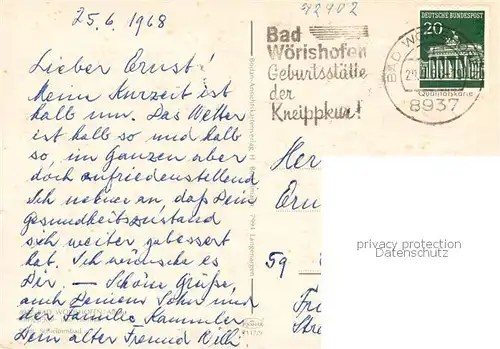 25.6.1968
42902
Lieber Ernst!
Meine Kurzeit ist
halb um. Das Wetter
ist halb so und halb
so, im Ganzen aber
doch zufriedenstellend
Ich nehme an, daß Dein
Gesundheitszustand
sich weiter gebessert
hat. Ich wünsche es
Dir — Schöne Grüße,
auch Deinem Sohn und
der Familie Kammler
Dein alter Freund Willi
BAD WÖRISHOFEN
Schwimmbad
Bad
Wörishofen
Geburtsstätte
der
Kneippkur!
BAD WÖ
8937
DEUTSCHE BUNDESPOST
20
Qualitätskarte
Her
Ern
59
Fri
Stre
privacy protection
Datenschutz